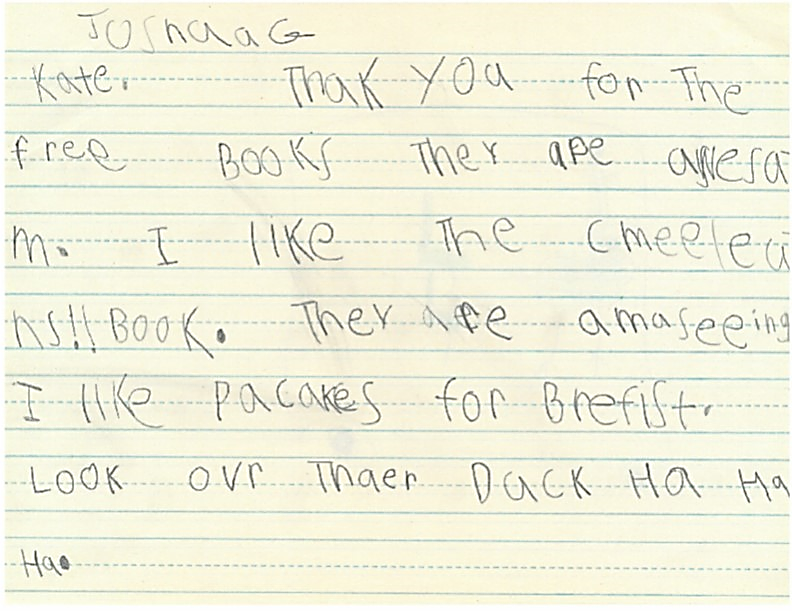 JoshuaG
Kate. Thak You for The
free Books Ther are awesa
m. I like The Cmeelea
ns!! Book. Ther are amaseeing
I like pacakes for Brefist.
Look ovr Thaer Duck Ha Ha
Ha.